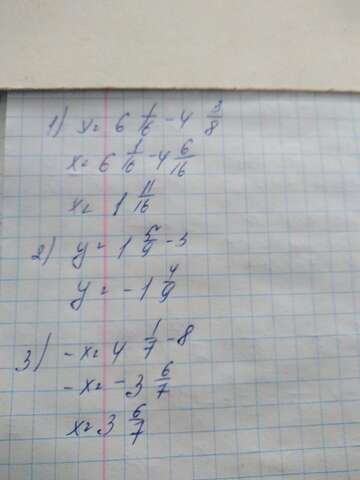 1) x = 6 1/16 - 4 3/8
x = 6 1/16 - 4 6/16
x = 1 11/16
2) y = 1 5/9 - 3
y = - 1 4/9
3) -x = 4 1/7 - 8
-x = - 3 6/7
x = 3 6/7